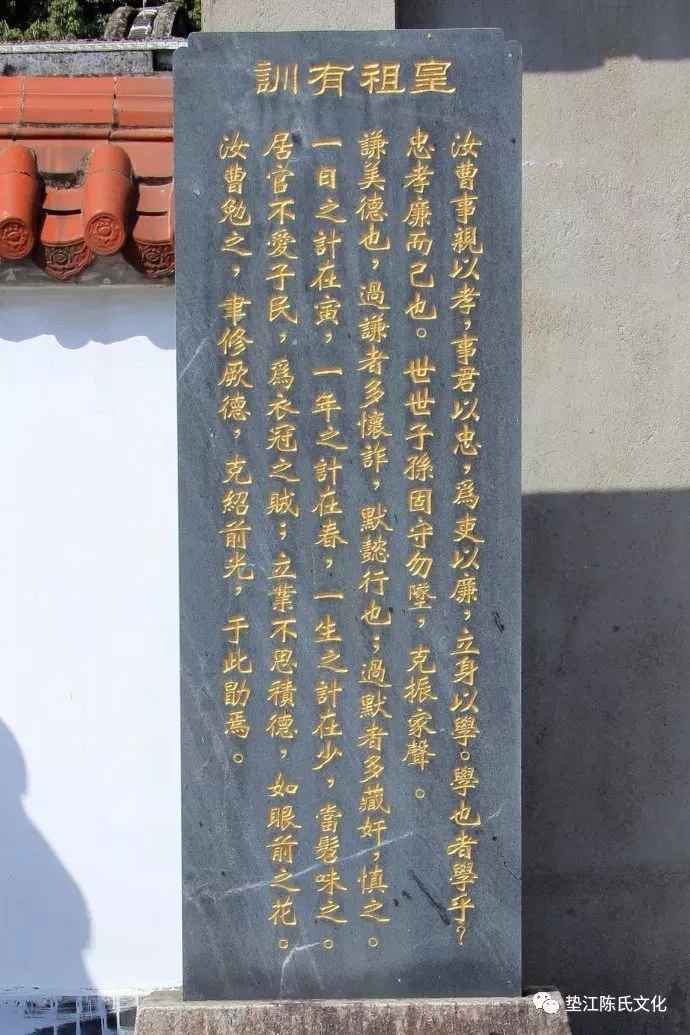 皇祖有訓
汝曹事親以孝，事君以忠，爲吏以廉，立身以學。學也者學乎？
忠孝廉而已也。世世子孫固守勿墜，克振家聲。
謙美德也，過謙者多懷詐，默懿行也；過默者多藏奸，慎之。
一日之計在寅，一年之計在春，一生之計在少，當髫味之。
居官不愛子民，爲衣冠之賊；立業不思積德，如眼前之花。
汝曹勉之，聿修厥德，克紹前光，于此勖焉。
垫江陈氏文化